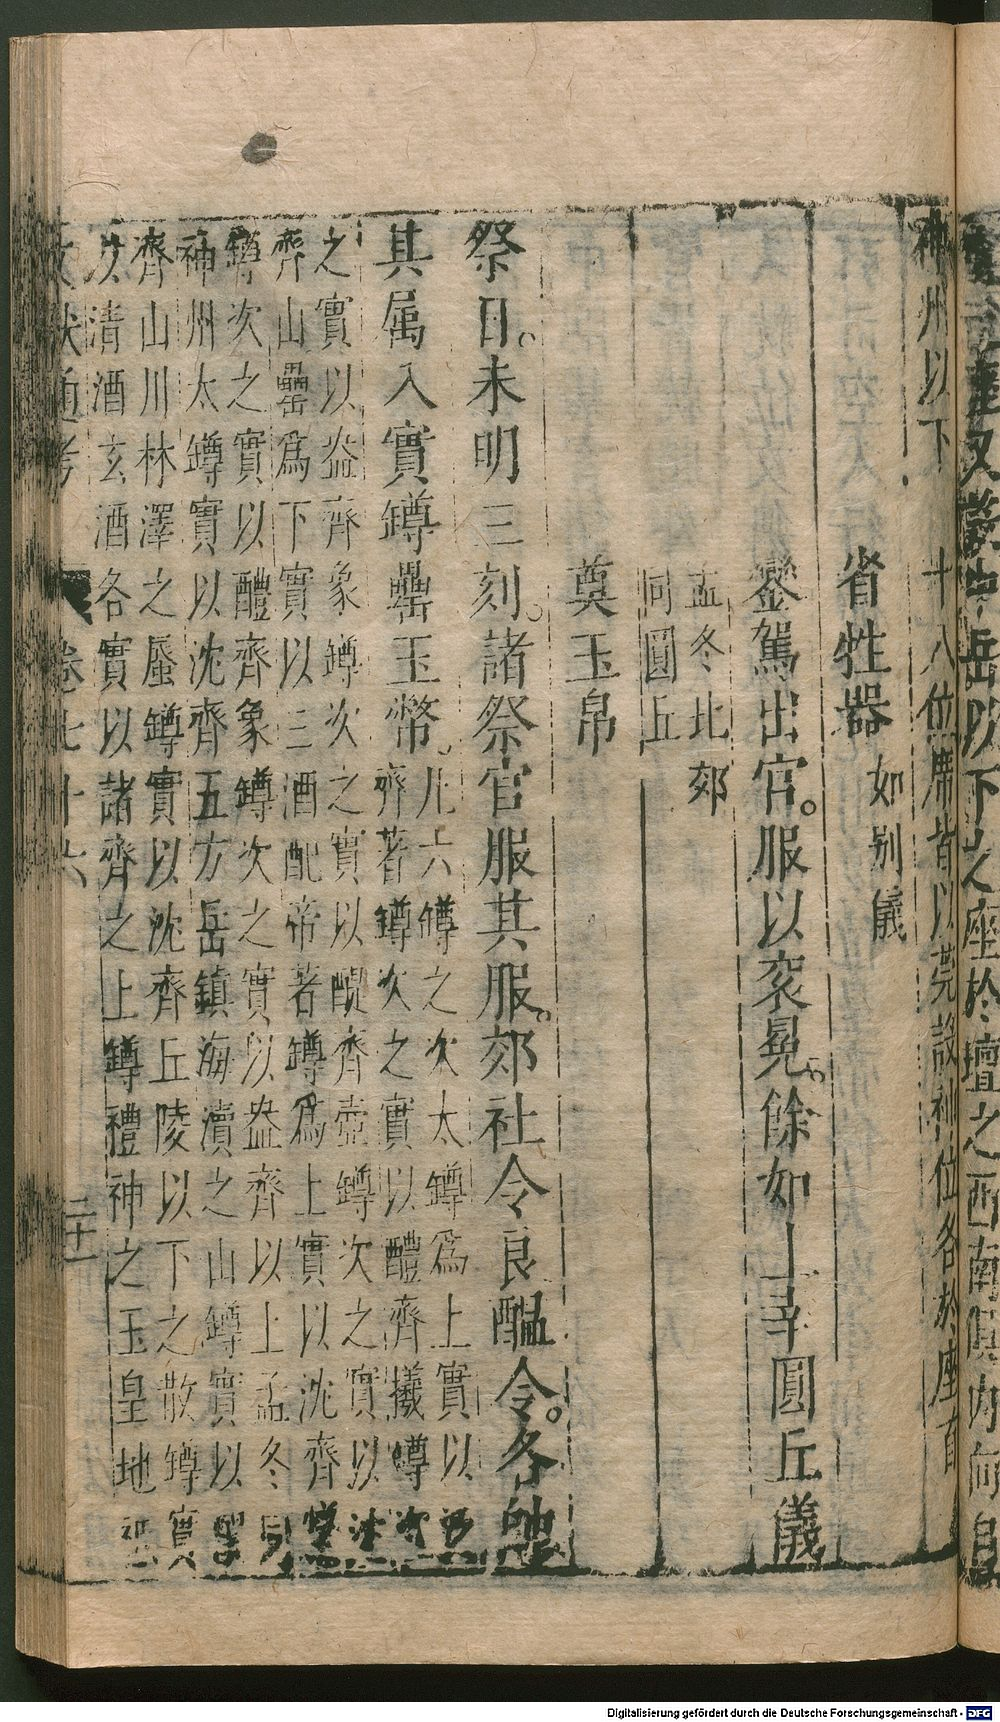 神州以下
十八位席皆以莞設神位各於座首
省牲器如别儀
鑾駕出宮服以衮冕餘如上辛圓丘儀
孟冬北郊
同圓丘
奠玉帛
祭日未明三刻諸祭官服其服郊社令良醞令各帥
其属入實罇罍玉幣
凡六罇之次太罇爲上實以
齊著罇次之實以醴齊犧罇次
之實以盎齊象罇次之實以醍齊壺罇次之實以沈
齊山罍爲下實以三酒配帝著罇爲上實以沈齊
罇次之實以醴齊象罇次之實以盎齊以上孟冬同
神州太罇實以沈齊五方岳鎮海瀆之山罇實以
齊山川林澤之蜃罇實以沈齊丘陵以下之散罇實
以清酒玄酒各實以諸齊之上罇禮神之玉皇地祗
文献通考 卷七十六 二十一
岳以下之座於壇之西南俱内向自
Digitalisierung gefördert durch die Deutsche Forschungsgemeinschaft - DFG